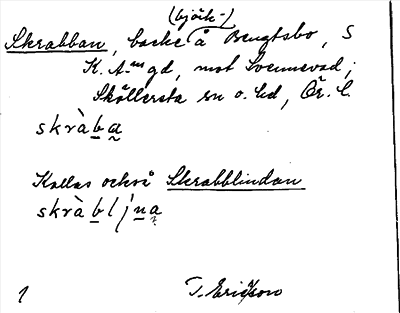 (björk-)
Skrabban, backe å Bengtsbo, S
K. A.ⁿˢ gd, mot Svennevad;
Sköllersta sn o. hd, Ör. l.
skràba
Kallas också Skrabblindan
skràbljna
1 T. Ericsson